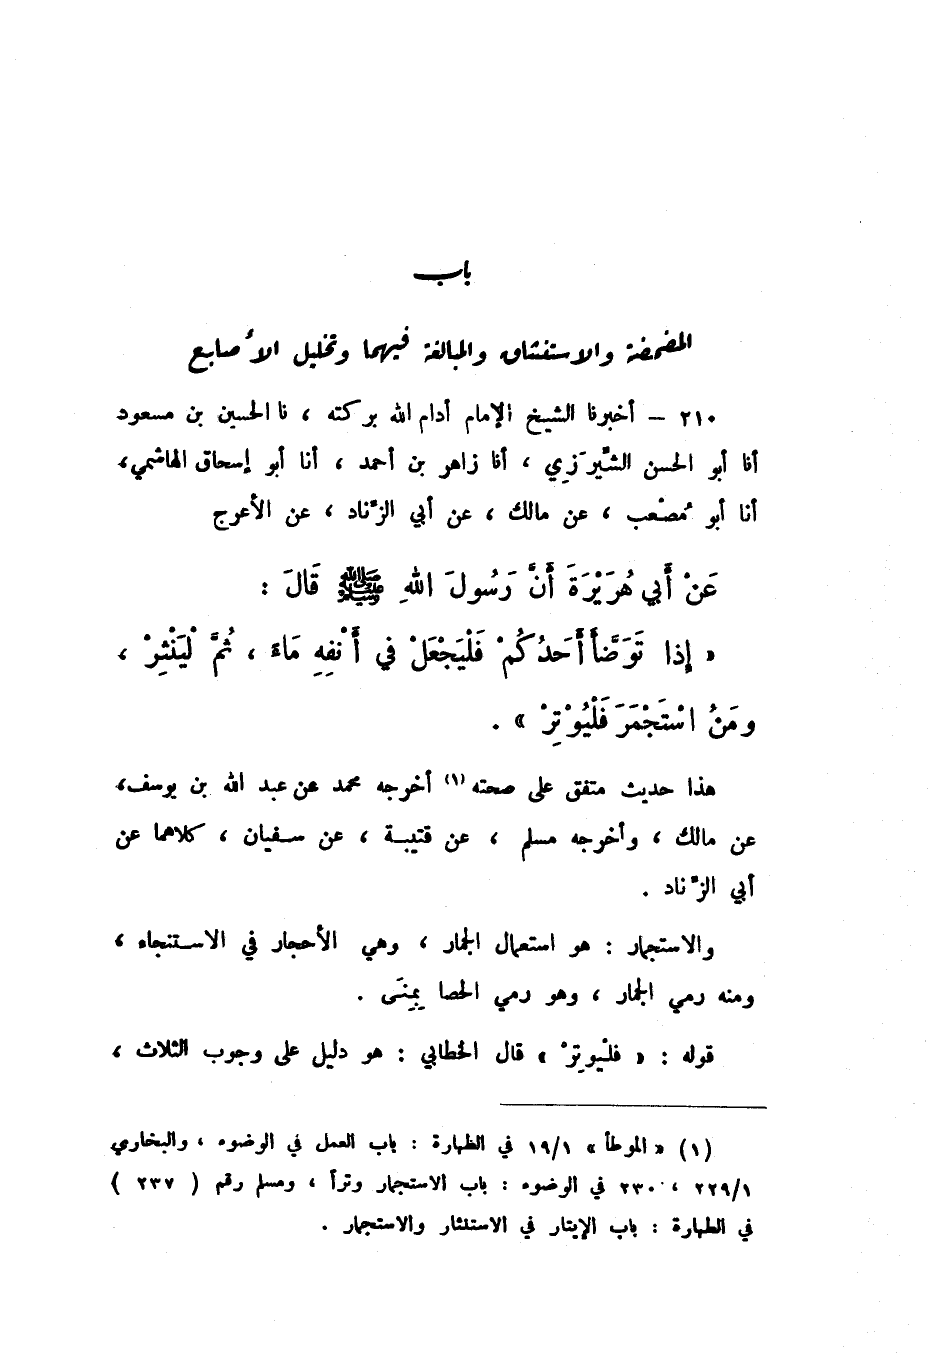 باب
المضمضة والاستنشاق والمبالغة فيهما وتخليل الأصابع
٢١٠ – أخبرنا الشيخ الإمام أدام الله بركته ، نا الحسين بن مسعود
أنا أبو الحسن الشِّيرَزي ، أنا زاهر بن أحمد ، أنا أبو إسحاق الهاشمي،
أنا أبو مُصْعب ، عن مالك ، عن أبي الزِّناد ، عن الأعرج
عَنْ أَبي هُرَيْرَةَ أَنَّ رَسُولَ اللهِ ﷺ قَالَ :
« إِذا تَوَضَّأَ أَحَدُكُمْ فَلْيَجْعَلْ في أَنْفِهِ مَاءً ، ثُمَّ لْيَنْثِرْ ،
ومَنُ اسْتَجْمَرَ فَلْيُوْتِرْ » .
هذا حديث متفق على صحته (١) أخرجه محمد عن عبد الله بن يوسف،
عن مالك ، وأخرجه مسلم ، عن قتيبة ، عن سفيان ، كلاهما عن
أبي الزِّناد .
والاستجمار : هو استعمال الجمار ، وهي الأحجار في الاستنجاء ،
ومنه رمي الجمار ، وهو رمي الحصا بِمِنَى .
قوله : « فلْيوتِرْ » قال الخطابي : هو دليل على وجوب الثلاث ،
(١) « الموطأ » ١٩/١ في الطهارة : باب العمل في الوضوء ، والبخاري
٢٢٩/١ ، ٢٣٠ في الوضوء : باب الاستجمار وتراً ، ومسلم رقم ( ٢٣٧ )
في الطهارة : باب الإيتار في الاستنثار والاستجمار .